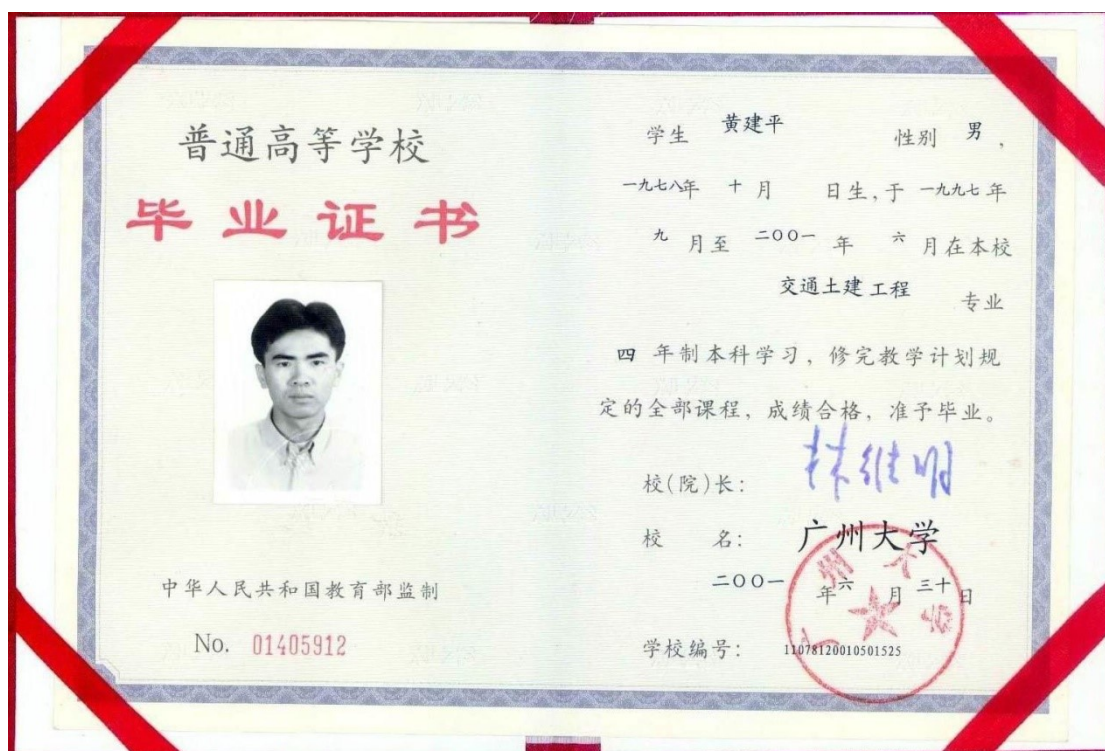 普通高等学校
毕业证书
中华人民共和国教育部监制
No. 01405912
学生 黄建平 性别 男，
一九七八年 十月 日生，于 一九九七年
九 月至 二〇〇一 年 六 月在本校
交通土建工程 专业
四 年制本科学习，修完教学计划规
定的全部课程，成绩合格，准予毕业。
校(院)长：
校 名： 广州大学
二〇〇一 年六 月 三十日
学校编号： 11078120010501525
广州大学